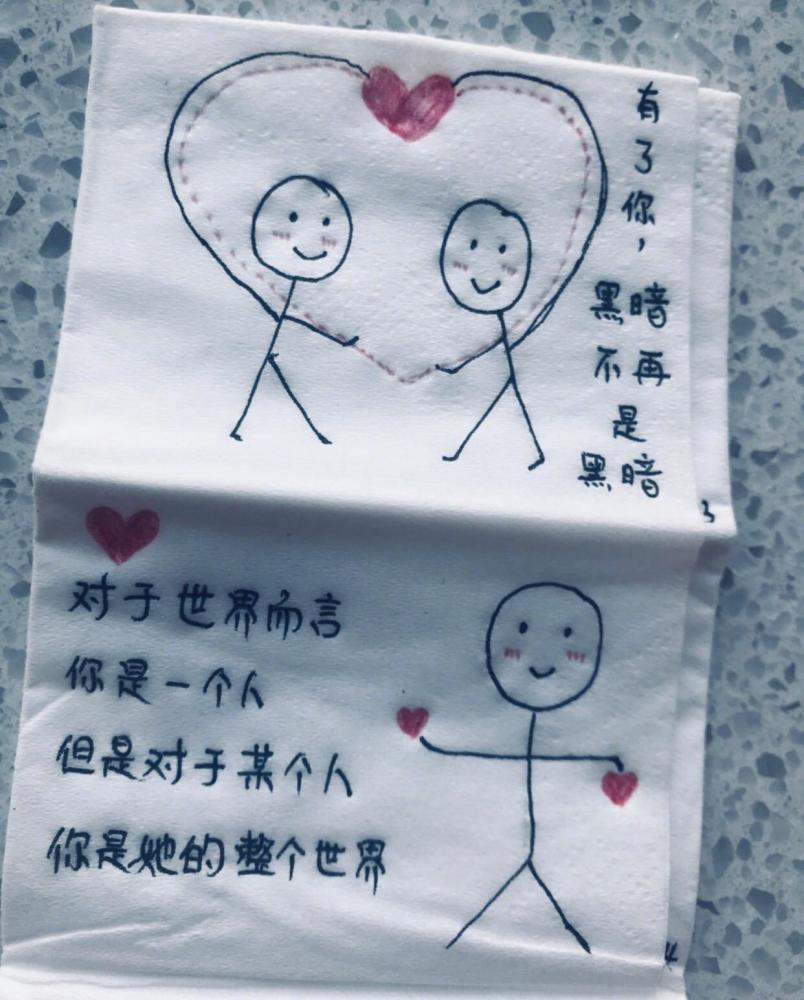 有了你，
黑暗
不再
是
黑暗
3
对于世界而言
你是一个人
但是对于某个人
你是她的整个世界
4